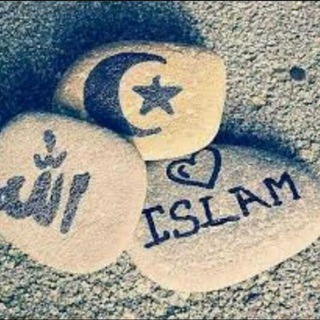 الله
ISLAM